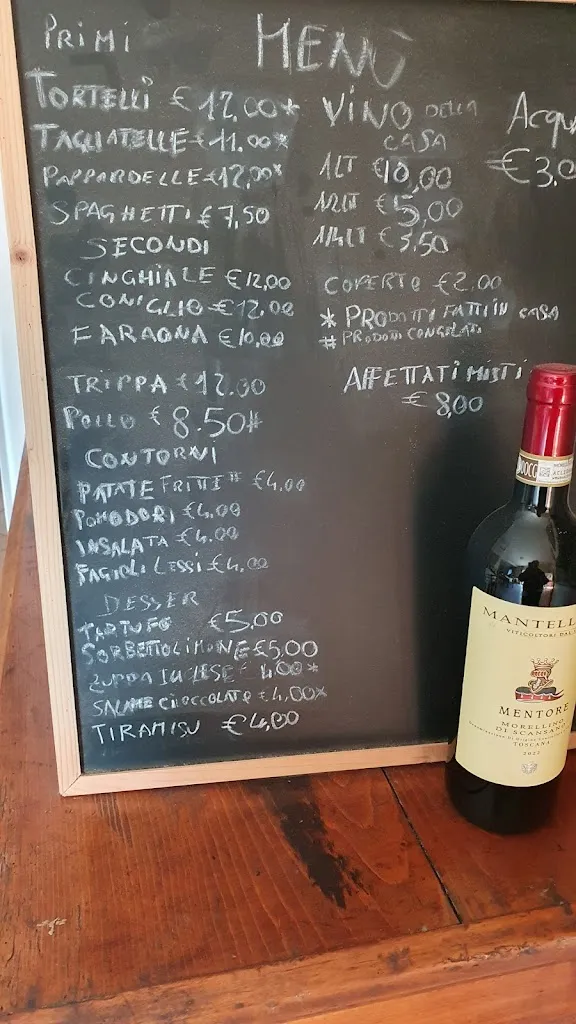 PRIMI
MENÙ
TORTELLI € 12.00*
TAGLIATELLE € 11.00*
PAPPARDELLE € 12,00*
SPAGHETTI € 7,50
SECONDI
CINGHIALE € 12,00
CONIGLIO € 12,00
FARAONA € 10,00
TRIPPA € 12.00
POLLO € 8.50#
CONTORNI
PATATE FRITTE # €4,00
POMODORI €4,00
INSALATA €4,00
FAGIOLI LESSI €4,00
DESSER
TARTUFO €5,00
SORBETTO LIMONE €5,00
ZUPPA INGLESE € 4,00*
SALAME CIOCCOLATO € 4,00*
TIRAMISU €4,00
VINO DELLA
CASA
1LT €10,00
1/2LT €5,00
1/4LT €3,50
COPERTO €2.00
* PRODOTTI FATTI IN CASA
# PRODOTTI CONGELATI
AFFETTATI MISTI
€ 8,00
Acqu
€3,0
DOCG
MANTELL
VITICOLTORI DAL
MENTORE
MORELLINO
DI SCANSANO
TOSCANA
2022